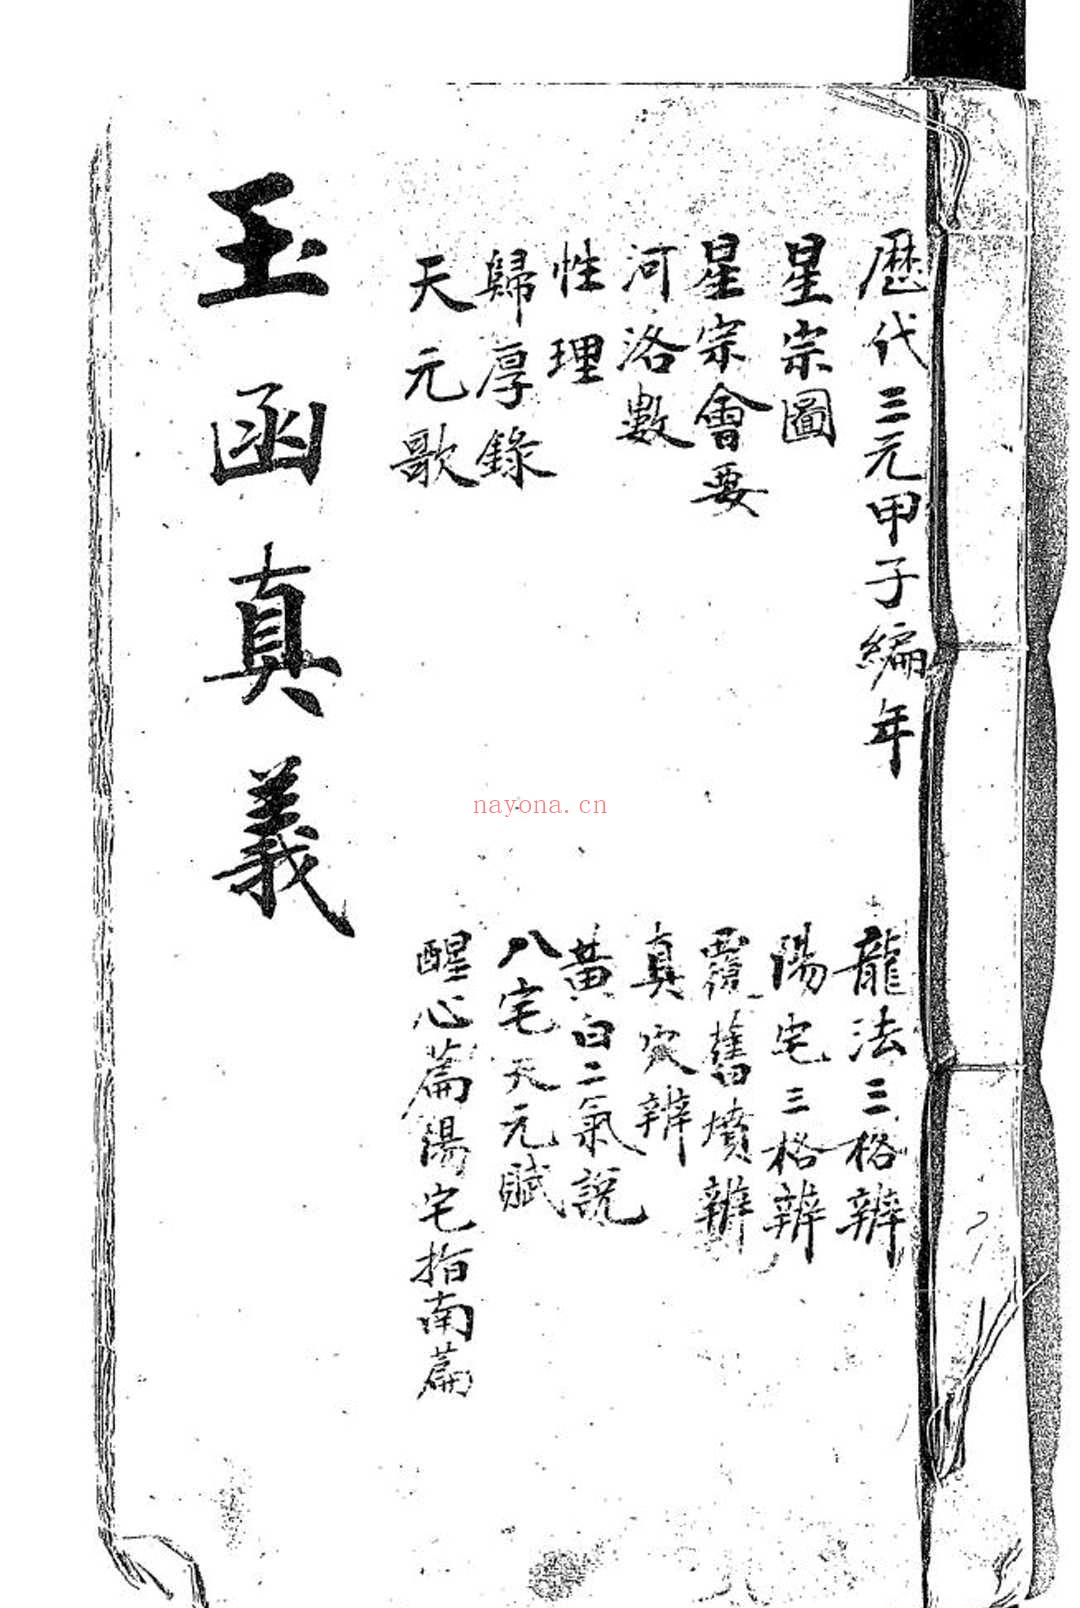 歷代三元甲子編年
星宗圖
星宗會要
河洛數
性理
歸厚錄
天元歌
龍法三格辨
陽宅三格辨
覆舊墳辨
真穴辨
黃白二氣說
八宅天元賦
醒心篇陽宅指南篇
玉函真義
nayona.cn